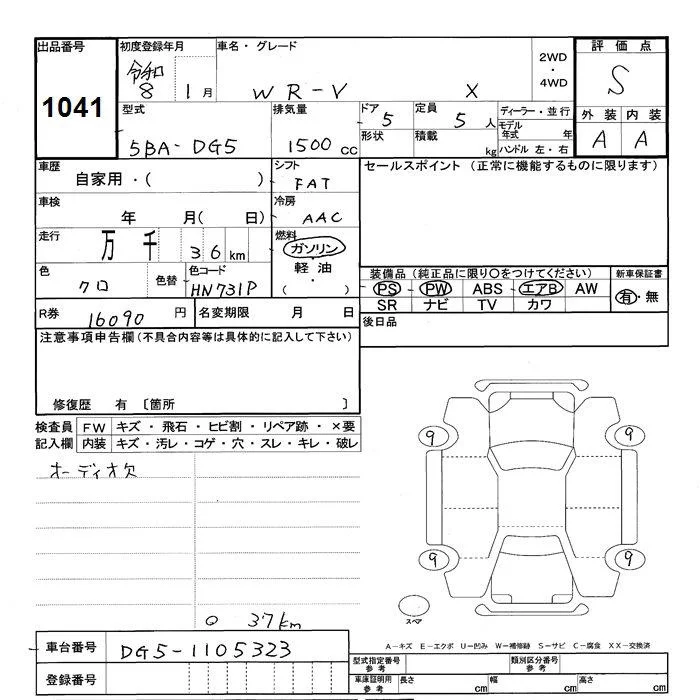 出品番号 初度登録年月 車名・グレード 2WD・4WD 評価点
1041 令和8 1月 WR-V X S
外装 内装
A A
型式 排気量 ドア 定員 ディーラー・並行
5BA-DG5 1500cc 5 5人 モデル年式 年
形状 積載 kg ハンドル 左・右
車歴 シフト セールスポイント (正常に機能するものに限ります)
自家用・( ) FAT
車検 冷房
年 月( 日) AAC
走行 燃料
万 千 36km ガソリン・軽油・( )
色 色替 色コード 装備品 (純正品に限り○をつけてください) 新車保証書
クロ HN731P PS PW ABS エアB AW 有・無
SR ナビ TV カワ
R券 16090円 名変期限 月 日 後日品
注意事項申告欄 (不具合内容等は具体的に記入して下さい)
修復歴 有 〔箇所 〕
検査員 FW キズ・飛石・ヒビ割・リペア跡・×要
記入欄 内装 キズ・汚レ・コゲ・穴・スレ・キレ・破レ
オーディオ欠
9 9
9 9
スペア
○ 37km
A-キズ E-エクボ U-凹み W-補修跡 S-サビ C-腐食 XX-交換済
車台番号 DG5-1105323
型式指定番号 参考 類別区分番号 参考
登録番号
車庫証明用 参考 長さ cm 幅 cm 高さ cm